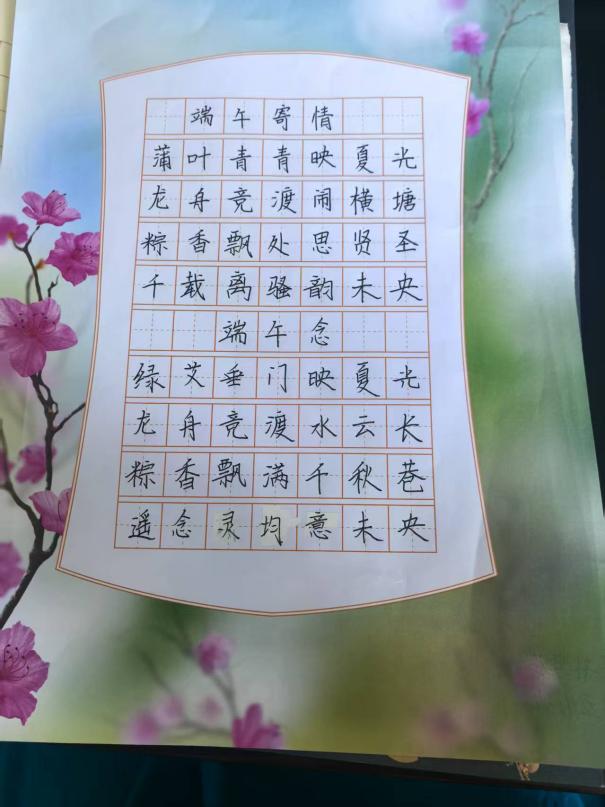 端午寄情
蒲叶青青映夏光
龙舟竞渡闹横塘
粽香飘处思贤圣
千载离骚韵未央
端午念
绿艾垂门映夏光
龙舟竞渡水云长
粽香飘满千秋巷
遥念灵均意未央